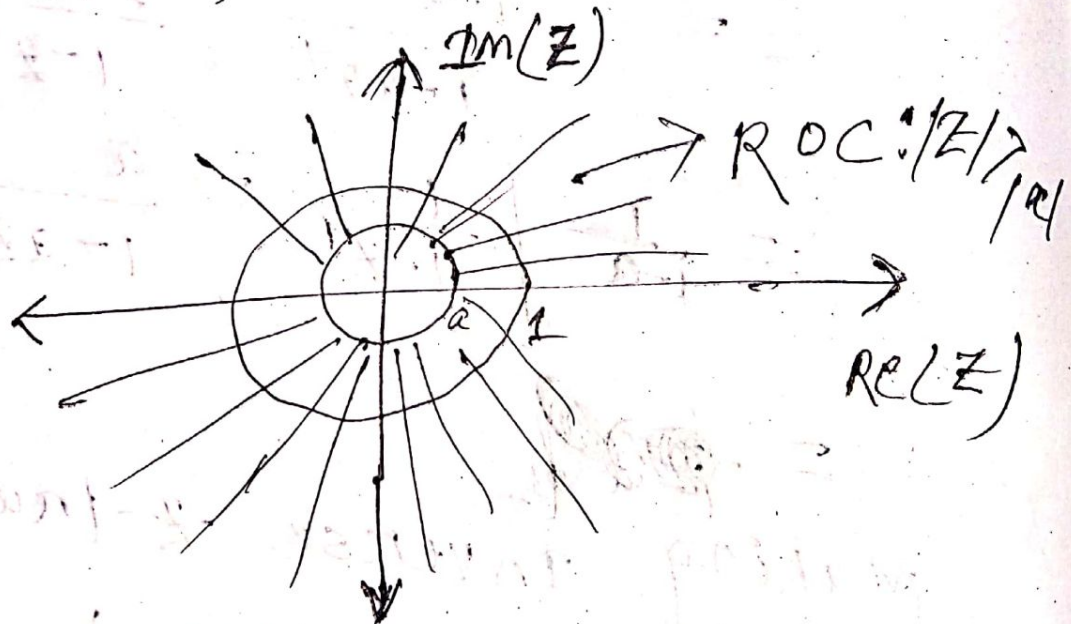 Im(Z)
ROC:|Z|>|a|
a
1
Re(Z)